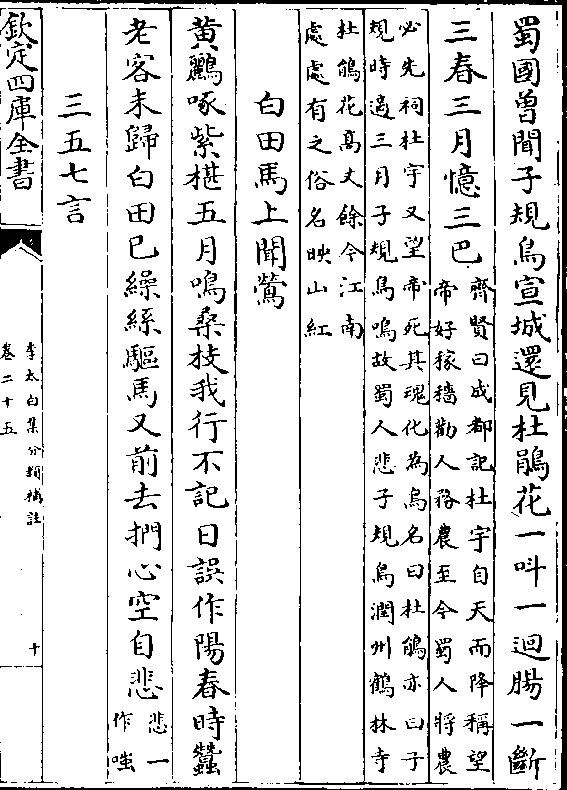 蜀國曽聞子規鳥宣城還見杜鵑花一呌一迴腸一斷
三春三月憶三巴
齊賢曰成都記杜宇自天而降稱望
帝好稼穡勸人務農至今蜀人將農
必先祠杜宇又望帝死其魂化為鳥名曰杜鵑亦曰子
規時適三月子規鳥鳴故蜀人悲子規鳥潤州鶴林寺
杜鵑花髙丈餘今江南
處處有之俗名映山紅
白田馬上聞鶯
黄鸝啄紫椹五月鳴桑枝我行不記日誤作陽春時蠶
老客未歸白田已繰絲驅馬又前去捫心空自悲
悲一
作嗤
三五七言
欽定四庫全書
李太白集分類補註
卷二十五
十